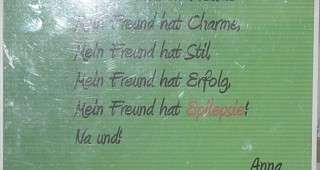 Mein Freund hat Charme,
Mein Freund hat Stil,
Mein Freund hat Erfolg,
Mein Freund hat Epilepsie!
Na und!
Anna